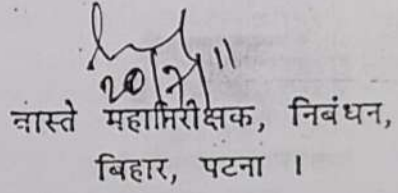 20/7/11
वास्ते महानिरीक्षक, निबंधन,
बिहार, पटना ।